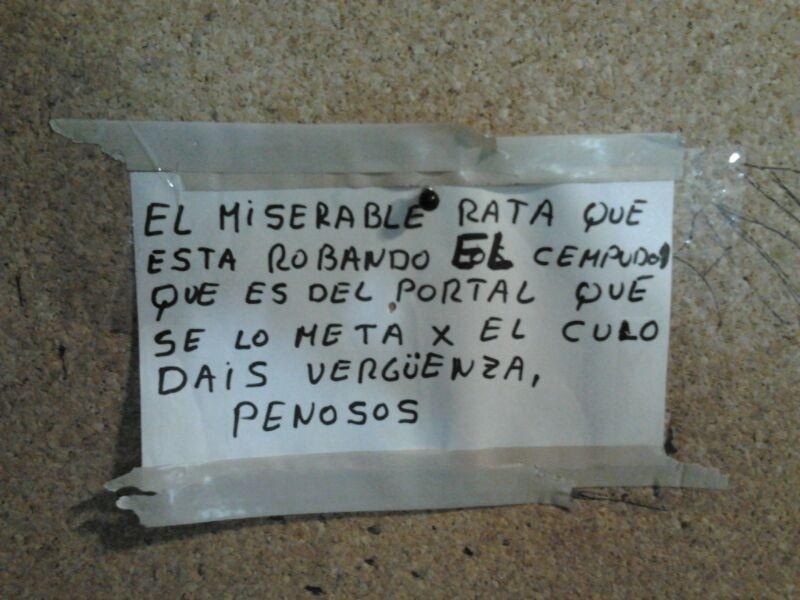 EL MiSERABLE RATA QUE
ESTA ROBANDO EL CEMPUDO
QUE ES DEL PORTAL QUE
SE LO META X EL CULO
DAiS VERGÜENZA,
PENOSOS